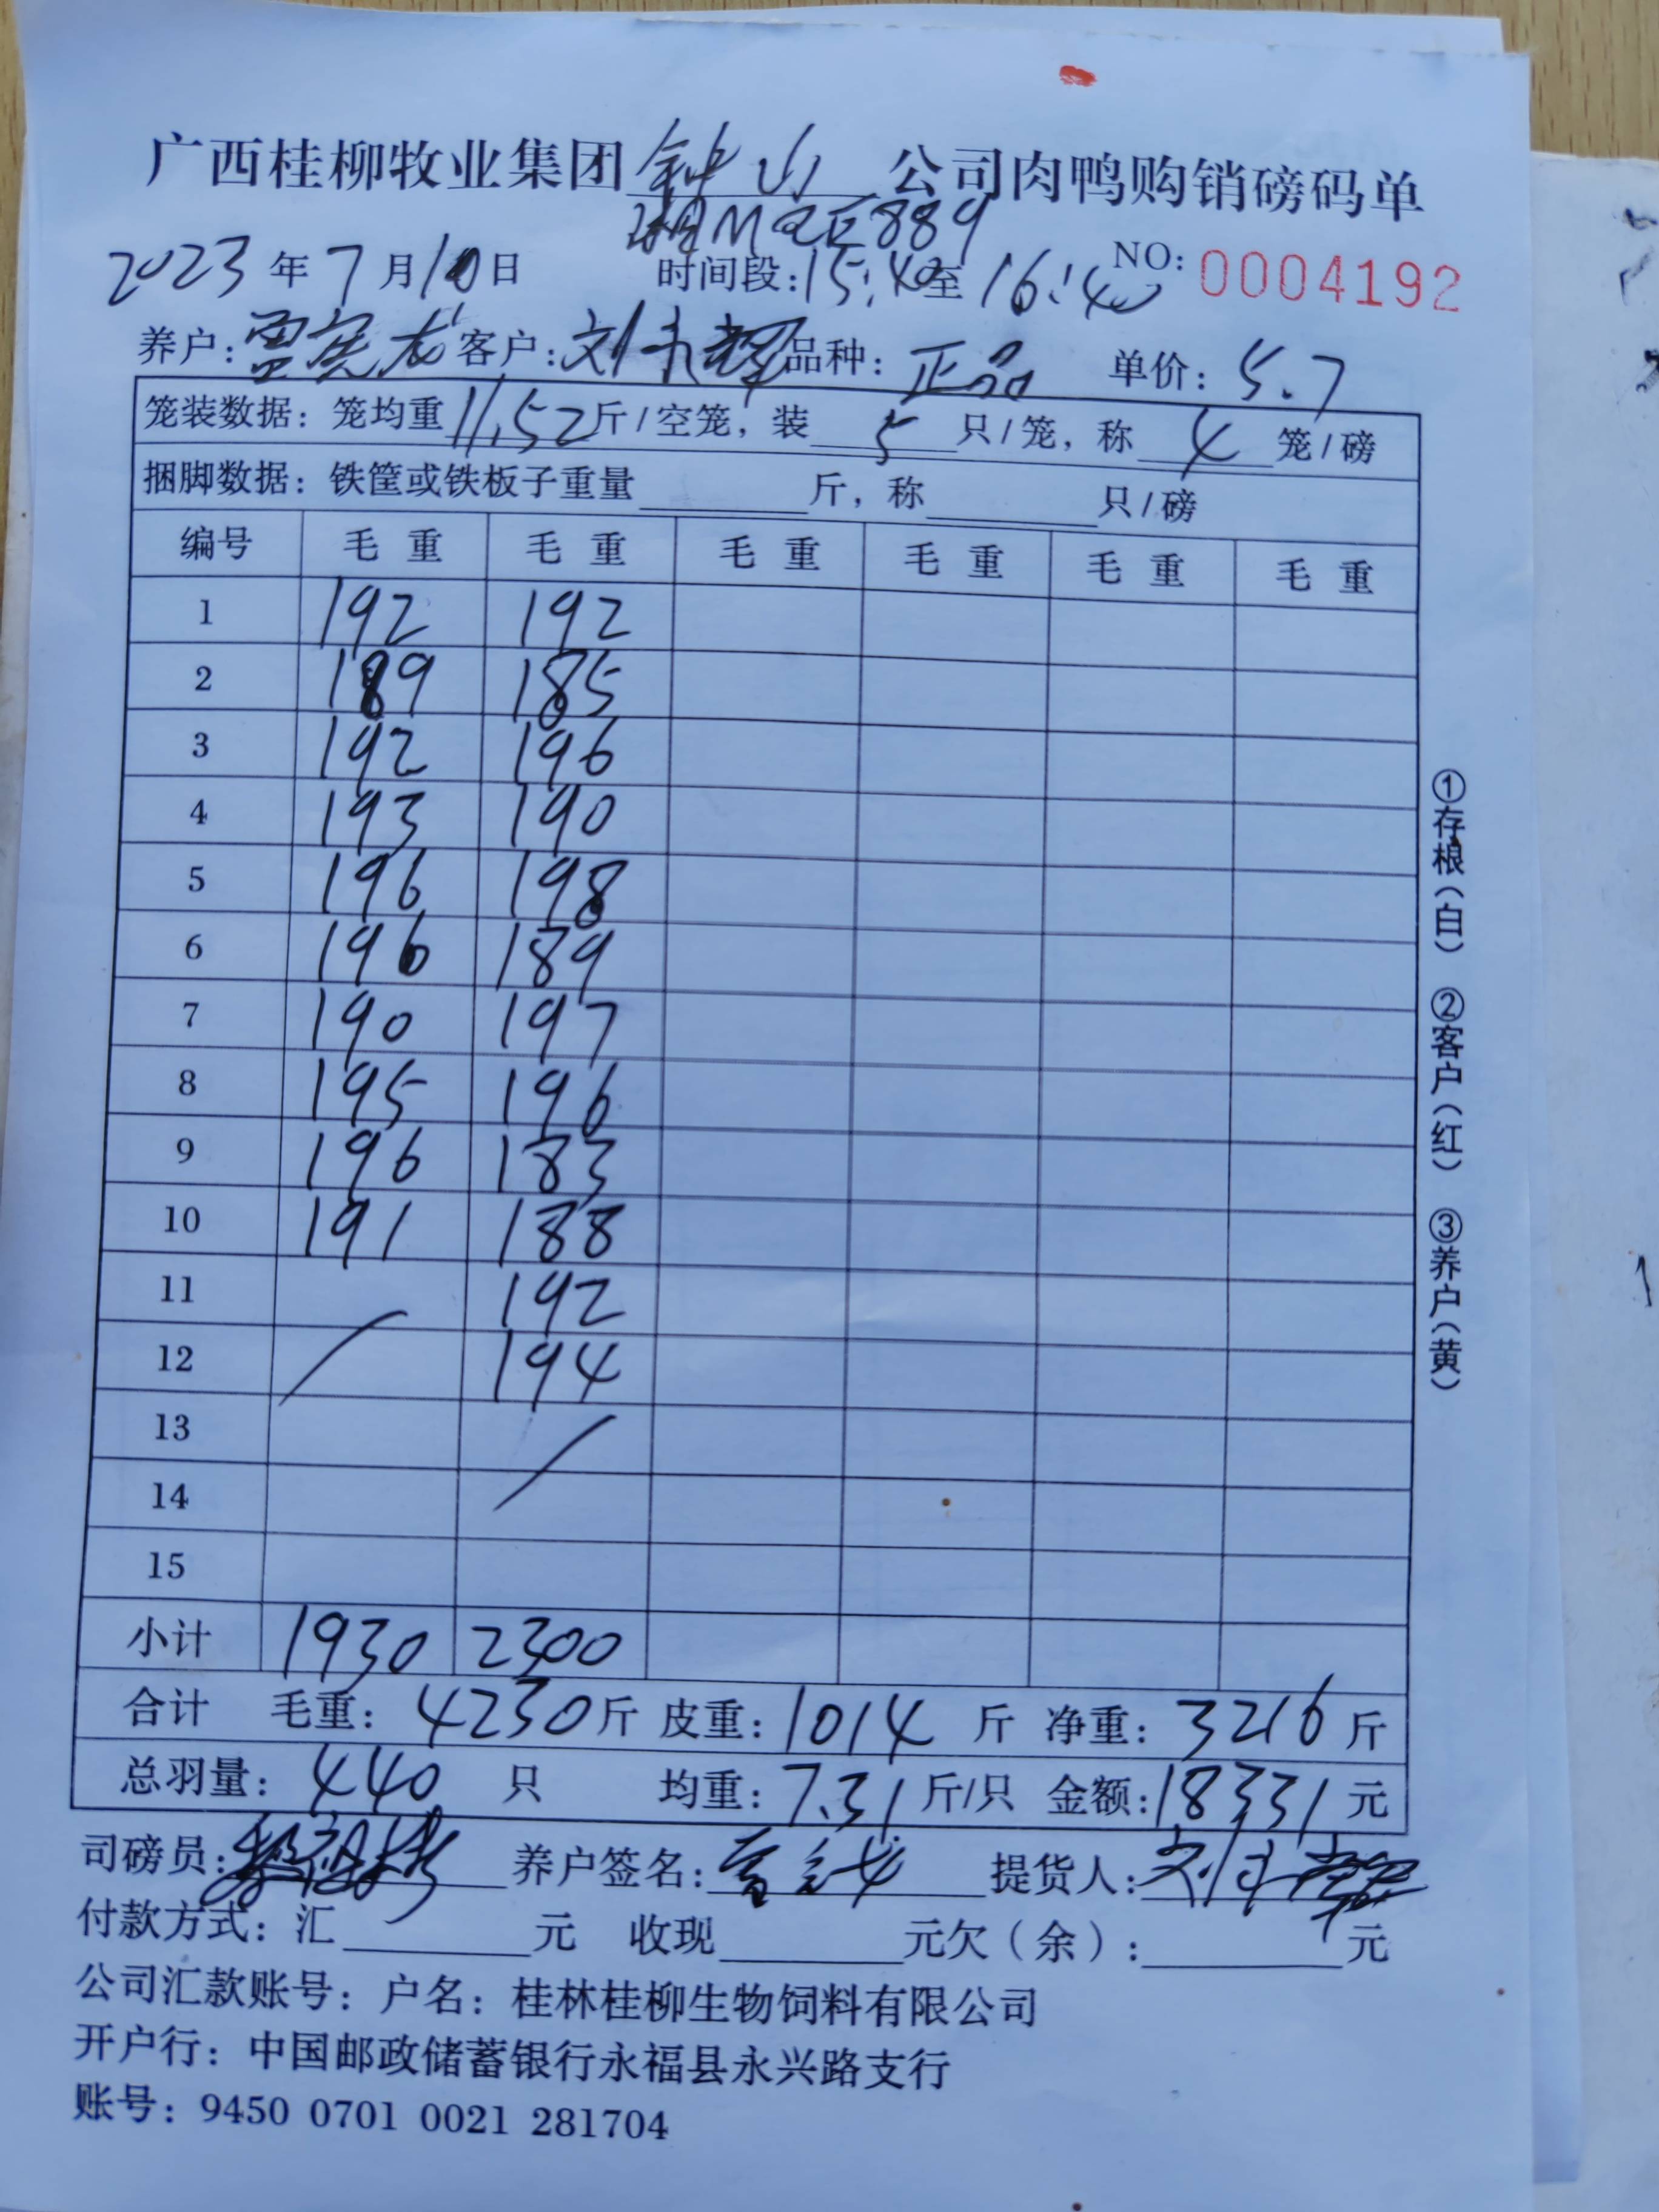 广西桂柳牧业集团钟山公司肉鸭购销磅码单
湘M 889
2023年7月10日 时间段:15:40至16:40 NO:0004192
养户: 客户:刘 品种:正品 单价:5.7
笼装数据:笼均重11.52斤/空笼,装5只/笼,称4笼/磅
捆脚数据:铁筐或铁板子重量 斤,称 只/磅
编号 毛重 毛重 毛重 毛重 毛重 毛重
1 192 192
2 189 185
3 192 196
4 193 190
5 196 198
6 196 189
7 190 197
8 195 196
9 196 183
10 191 188
11 192
12 194
13
14
15
小计 1930 2300
合计 毛重:4230斤 皮重:1014斤 净重:3216斤
总羽量:440只 均重:7.31斤/只 金额:18331元
司磅员: 养户签名: 提货人:刘
付款方式:汇 元 收现 元欠(余): 元
公司汇款账号:户名:桂林桂柳生物饲料有限公司
开户行:中国邮政储蓄银行永福县永兴路支行
账号:9450 0701 0021 281704
①存根(白) ②客户(红) ③养户(黄)